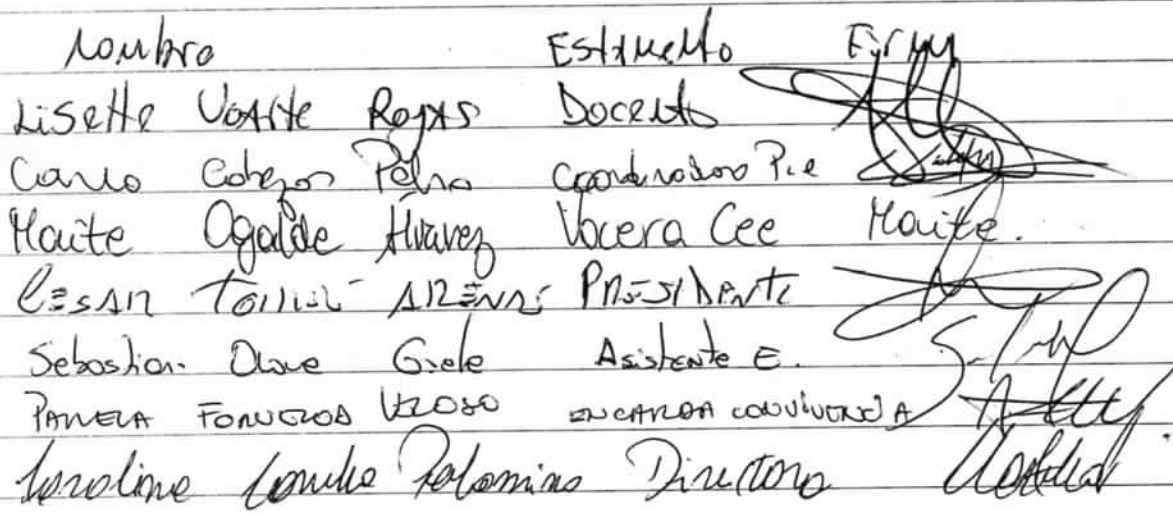 Nombre Estamento Firma
Lisette Uarte Rojas Docente
Carlo Cabezas Peña Coordinadora Pie
Maite Ogalde Álvarez Vocera Cee Maite.
Cesar Arenas Presidente
Sebastian Olave Asistente E.
Pamela Veloso Encargada convivencia
Caroline Concha Palomino Directora